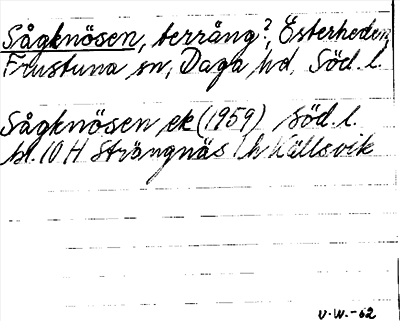 Sågknösen, terräng?, Esterheden,
Frustuna sn, Daga hd, Söd. l.
Sågknösen ek (1959) Söd. l.
bl. 10 H Strängnäs 1 h Källsvik
V.W.-62